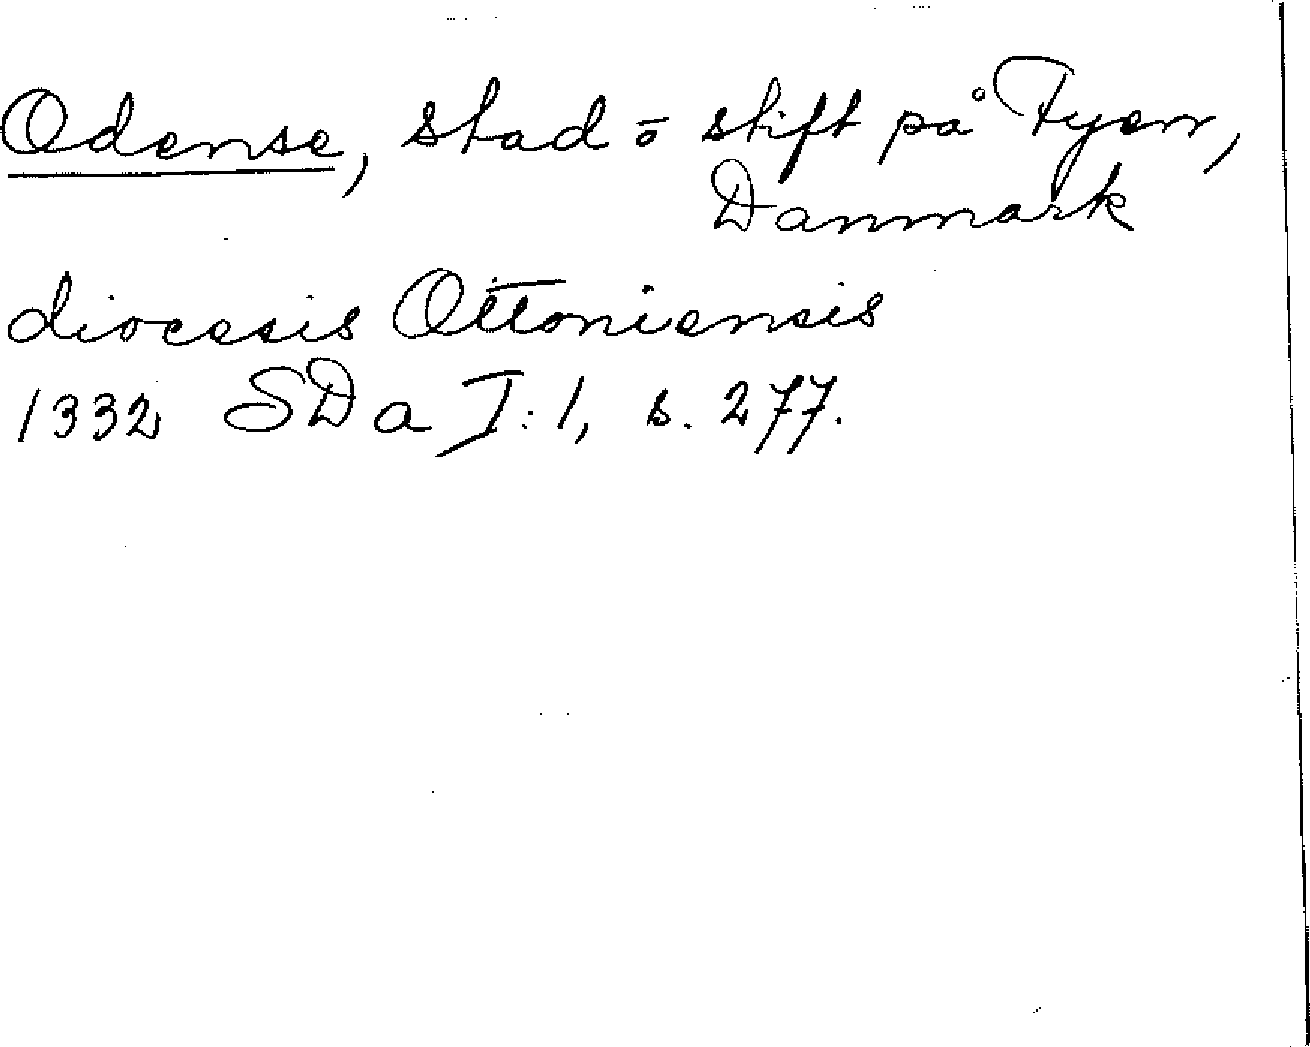 Odense, stad ō stift på Fyen,
Danmark
diocesis Ottoniensis
1332 SD a I:1, s. 277.